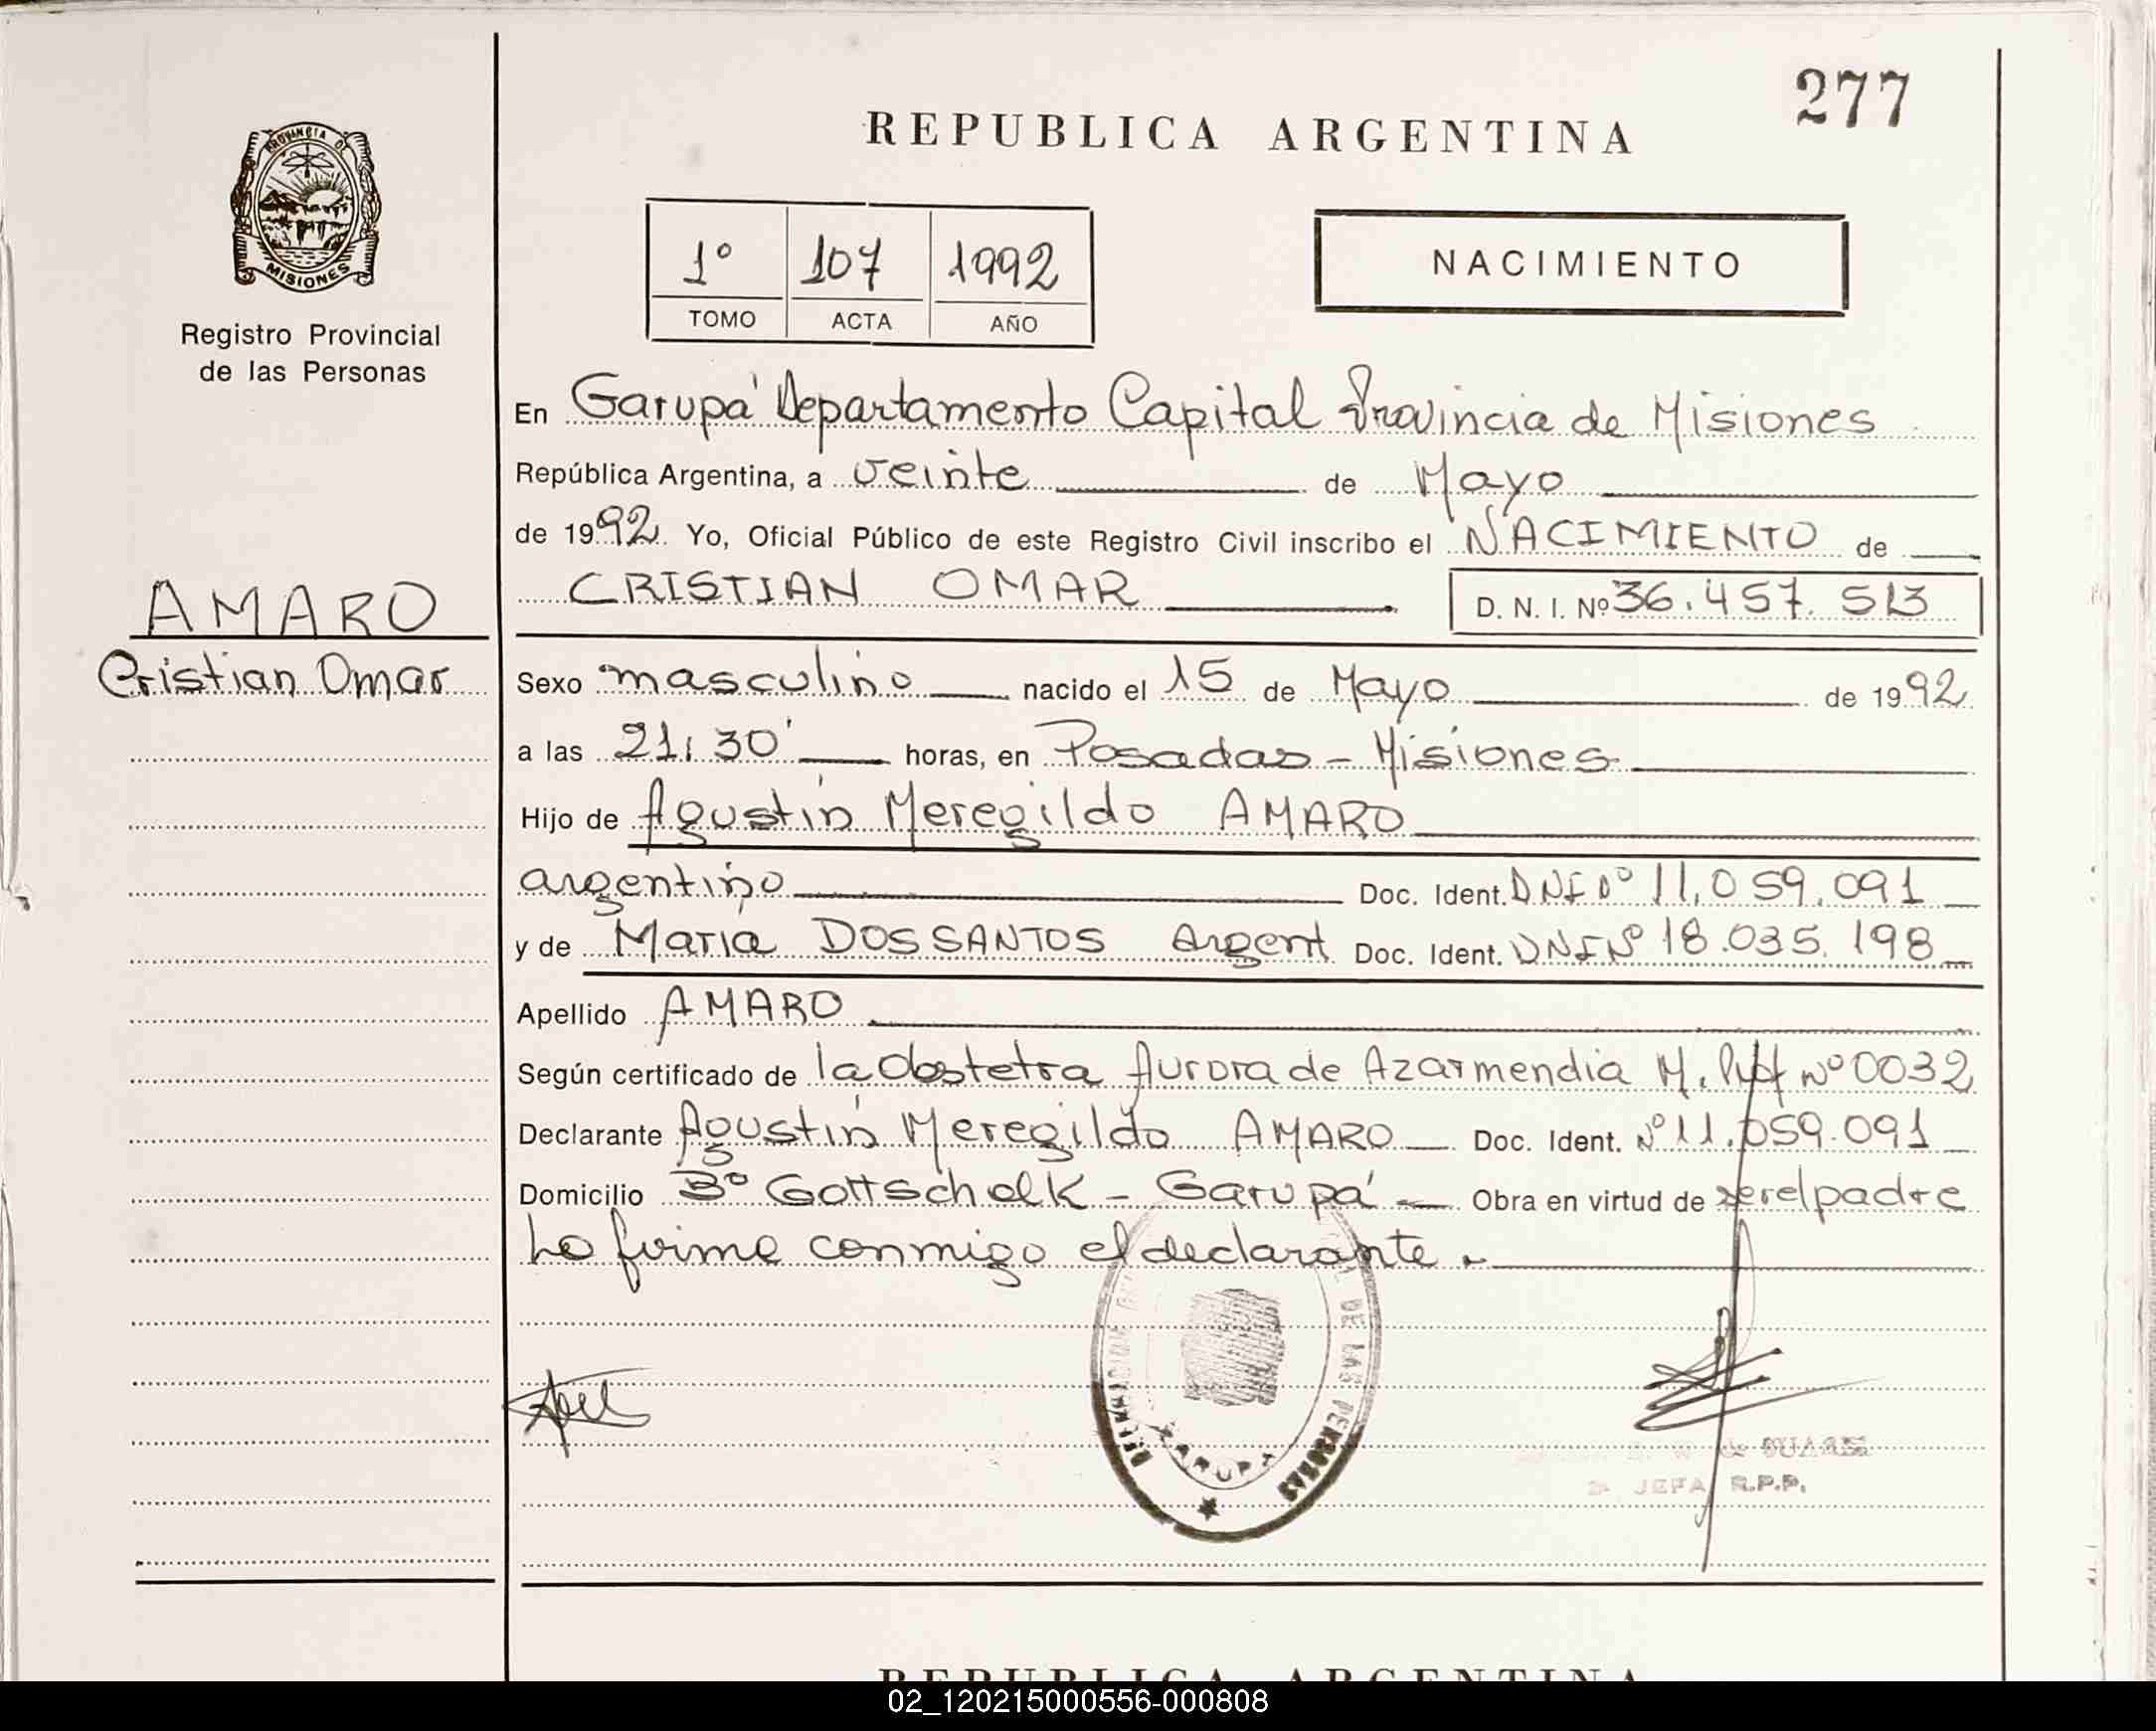 277
REPUBLICA ARGENTINA
PROVINCIA DE
MISIONES
Registro Provincial
de las Personas
1º 107 1992
TOMO ACTA AÑO
NACIMIENTO
En Garupá Departamento Capital Provincia de Misiones
República Argentina, a veinte de Mayo
de 1992. Yo, Oficial Público de este Registro Civil inscribo el NACIMIENTO de
CRISTIAN OMAR D. N. I. Nº 36.457.513
AMARO
Cristian Omar
Sexo masculino nacido el 15 de Mayo de 1992
a las 21,30' horas, en Posadas - Misiones
Hijo de Agustín Meregildo AMARO
argentino Doc. Ident. DNI Nº 11.059.091
y de María DOS SANTOS Argent. Doc. Ident. DNI Nº 18.035.198
Apellido AMARO
Según certificado de la Obstetra Aurora de Azarmendia M. Nº 0032
Declarante Agustín Meregildo AMARO Doc. Ident. Nº 11.059.091
Domicilio Bº Gottschalk - Garupá - Obra en virtud de ser el padre
Lo firma conmigo el declarante.-
DE LAS PERSONAS
GARUPA
de DUARTE
JEFA R.P.P.
REPUBLICA ARGENTINA
02_120215000556-000808